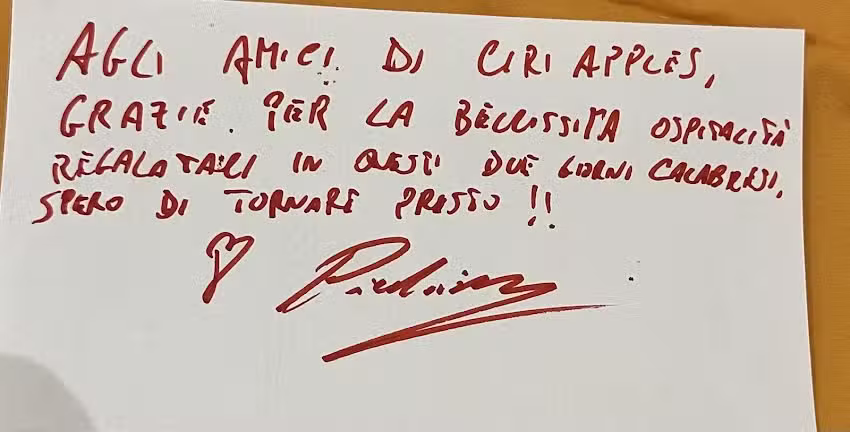 AGLI AMICI DI CIRI APPLES,
GRAZIE. PER LA BELLISSIMA OSPITALITÀ
REGALATACI IN QUESTI DUE GIORNI CALABRESI,
SPERO DI TORNARE PRESTO !!